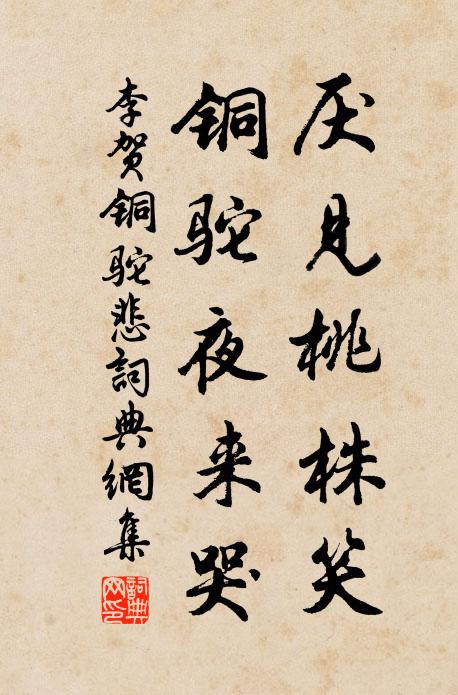 厌见桃株笑
铜驼夜来哭
李贺铜驼悲詞典網集
詞典网印